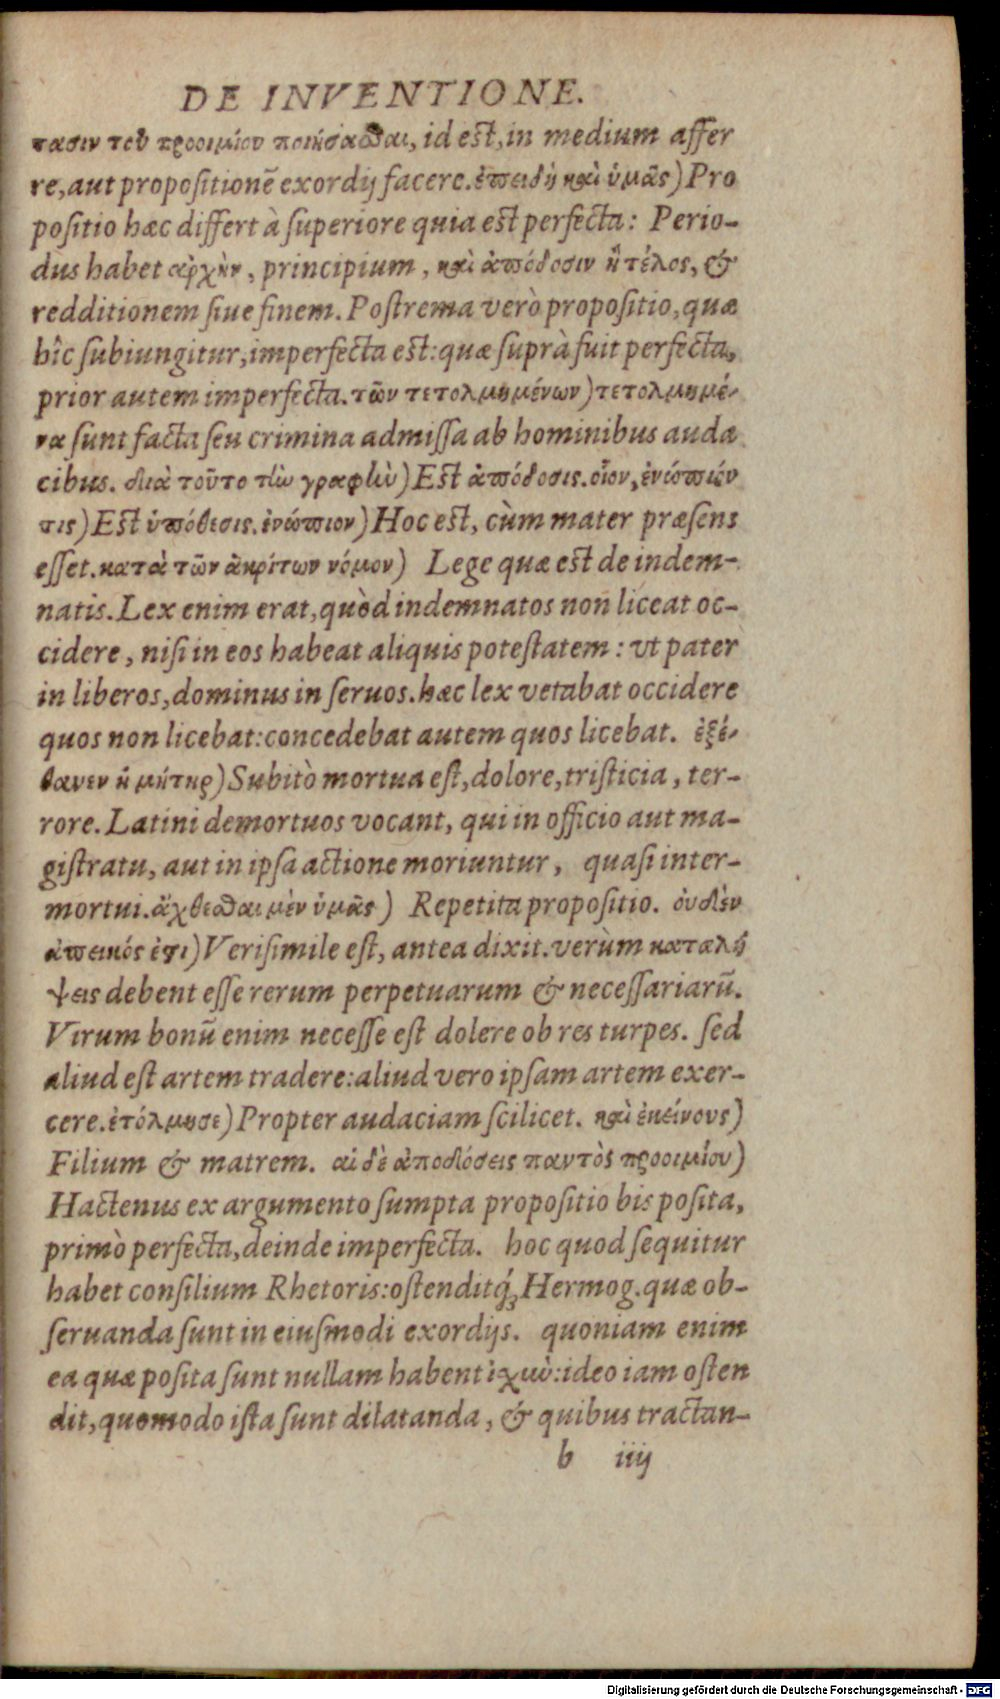 DE INVENTIONE.
τασιν τοῦ προοιμίου ποιήσασθαι, id est, in medium affer
re, aut propositionē exordij facere. ἐπειδὴ καὶ ὑμᾶς) Pro
positio hæc differt à superiore quia est perfecta: Perio-
dus habet ἀρχὴν, principium, καὶ ἀπόδοσιν ἢ τέλος, &
redditionem siue finem. Postrema verò propositio, quæ
hîc subiungitur, imperfecta est: quæ suprà fuit perfecta,
prior autem imperfecta. τῶν τετολμημένων) τετολμημέ-
να sunt facta seu crimina admissa ab hominibus auda
cibus. διὰ τοῦτο τὴν γραφὴν) Est ἀπόδοσις. οἷον, ἐνώπιόν
τις) Est ὑπόθεσις. ἐνώπιον) Hoc est, cùm mater præsens
esset. κατὰ τῶν ἀκρίτων νόμον) Lege quæ est de indem-
natis. Lex enim erat, quòd indemnatos non liceat oc-
cidere, nisi in eos habeat aliquis potestatem: vt pater
in liberos, dominus in seruos. hæc lex vetabat occidere
quos non licebat: concedebat autem quos licebat. ἐξέ-
θανεν ἡ μήτηρ) Subitò mortua est, dolore, tristicia, ter-
rore. Latini demortuos vocant, qui in officio aut ma-
gistratu, aut in ipsa actione moriuntur, quasi inter-
mortui. ἄχθεσθαι μὲν ὑμᾶς) Repetita propositio. οὐδὲν
ἀπεικός ἐστι) Verisimile est, antea dixit. verùm καταλή
ψεις debent esse rerum perpetuarum & necessariarū.
Virum bonū enim necesse est dolere ob res turpes. sed
aliud est artem tradere: aliud vero ipsam artem exer-
cere. ἐτόλμησε) Propter audaciam scilicet. καὶ ἐκείνους)
Filium & matrem. αἱ δὲ ἀποδόσεις παντὸς προοιμίου)
Hactenus ex argumento sumpta propositio bis posita,
primò perfecta, deinde imperfecta. hoc quod sequitur
habet consilium Rhetoris: ostenditq́; Hermog. quæ ob-
seruanda sunt in eiusmodi exordijs. quoniam enim
ea quæ posita sunt nullam habent ἰσχὺν: ideo iam osten
dit, quomodo ista sunt dilatanda, & quibus tractan-
b iiij
Digitalisierung gefördert durch die Deutsche Forschungsgemeinschaft - DFG